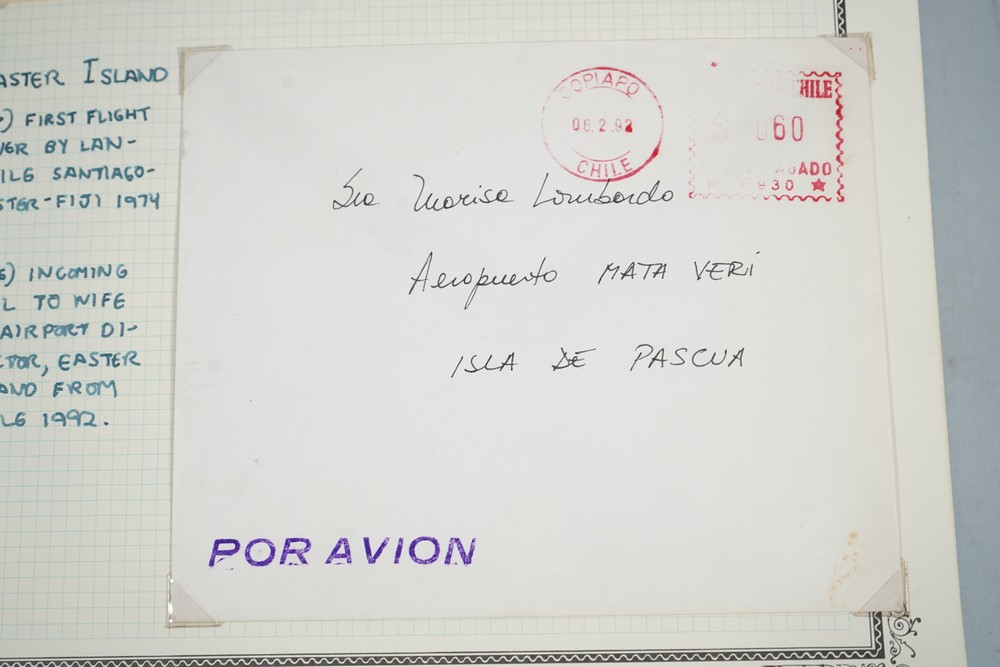 ASTER ISLAND
) FIRST FLIGHT
VER BY LAN-
ILE SANTIAGO-
STER-FIJI 1974
) INCOMING
L TO WIFE
AIRPORT DI-
CTOR, EASTER
AND FROM
LE 1992.
COPIAPO
06.2.92
CHILE
HILE
060
ADO
930
Sra Marisa Lombardo
Aeropuerto MATA VERI
ISLA DE PASCUA
POR AVION